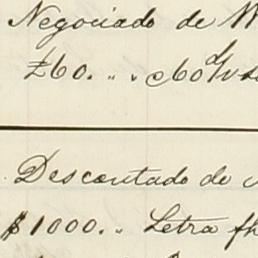 Negociado de
£60. " . c/60 d/v
Descontado de
$1000. " Letra